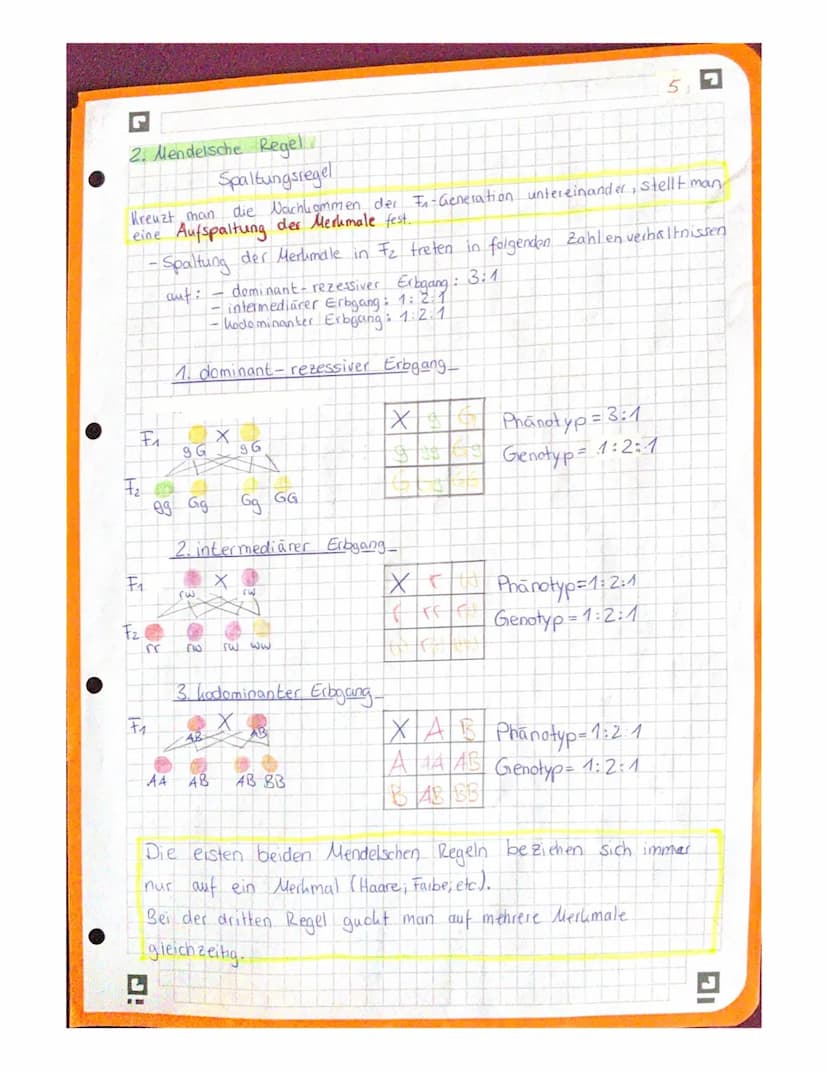 5.
2. Mendelsche Regel
Spaltungsregel
Kreuzt man die Nachkommen der F1-Generation untereinander, stellt man
eine Aufspaltung der Merkmale fest.
- Spaltung der Merkmale in F2 treten in folgenden Zahlenverhältnissen
auf: - dominant-rezessiver Erbgang: 3:1
- intermediärer Erbgang: 1:2:1
- kodominanter Erbgang: 1:2:1
1. dominant-rezessiver Erbgang
F1 X
gG gG
F2
gg Gg Gg GG
X g G
g gg Gg
G Gg GG
Phänotyp = 3:1
Genotyp = 1:2:1
2. intermediärer Erbgang
F1 X
rw rw
F2
rr rw rw ww
X r w
r rr
Phänotyp=1:2:1
Genotyp = 1:2:1
3. kodominanter Erbgang
F1 X
AB AB
AA AB AB BB
X A B
A AA AB
B AB BB
Phänotyp= 1:2:1
Genotyp= 1:2:1
Die ersten beiden Mendelschen Regeln beziehen sich immer
nur auf ein Merkmal (Haare, Farbe, etc).
Bei der dritten Regel guckt man auf mehrere Merkmale
gleichzeitig.